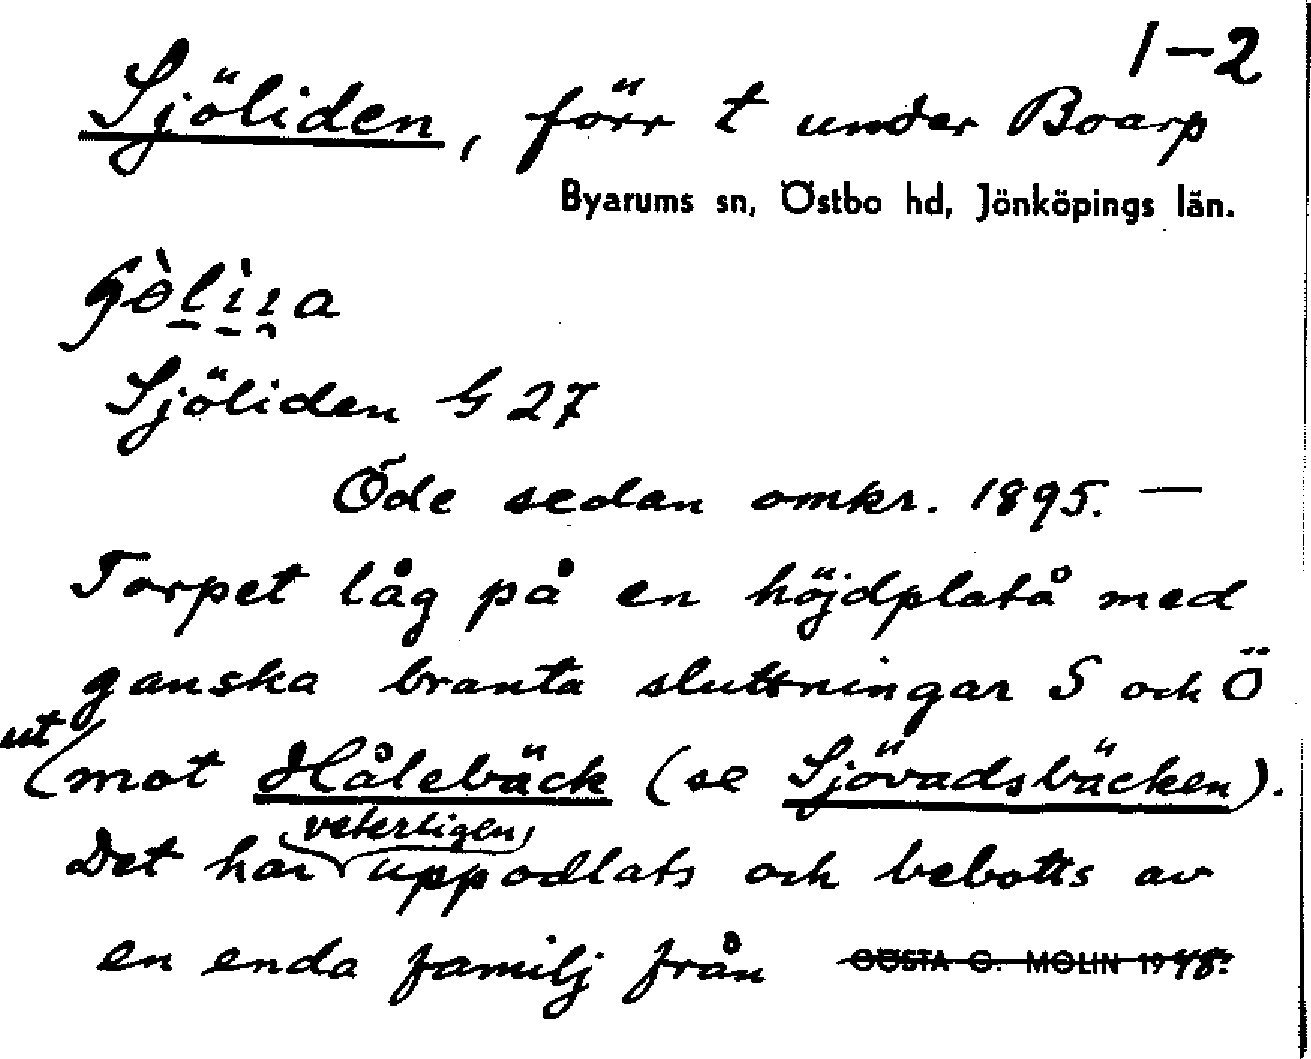 1-2
Sjöliden, förr t under Boarp
Byarums sn, Östbo hd, Jönköpings län.
Sjöliden G 27
Öde sedan omkr. 1895. —
Torpet låg på en höjdplatå med
ganska branta sluttningar S och Ö
ut mot Hålebäck (se Sjövadsbäcken).
Det har veterligen uppodlats och bebotts av
en enda familj från
GÖSTA O. MOLIN 1948.